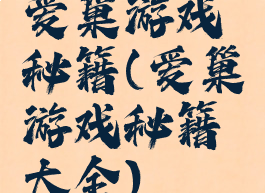 爱巢游戏
秘籍(爱巢
游戏秘籍
大全)